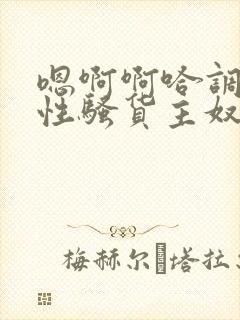 嗯啊啊哈調
性騷货主奴
梅赫尔 塔拉